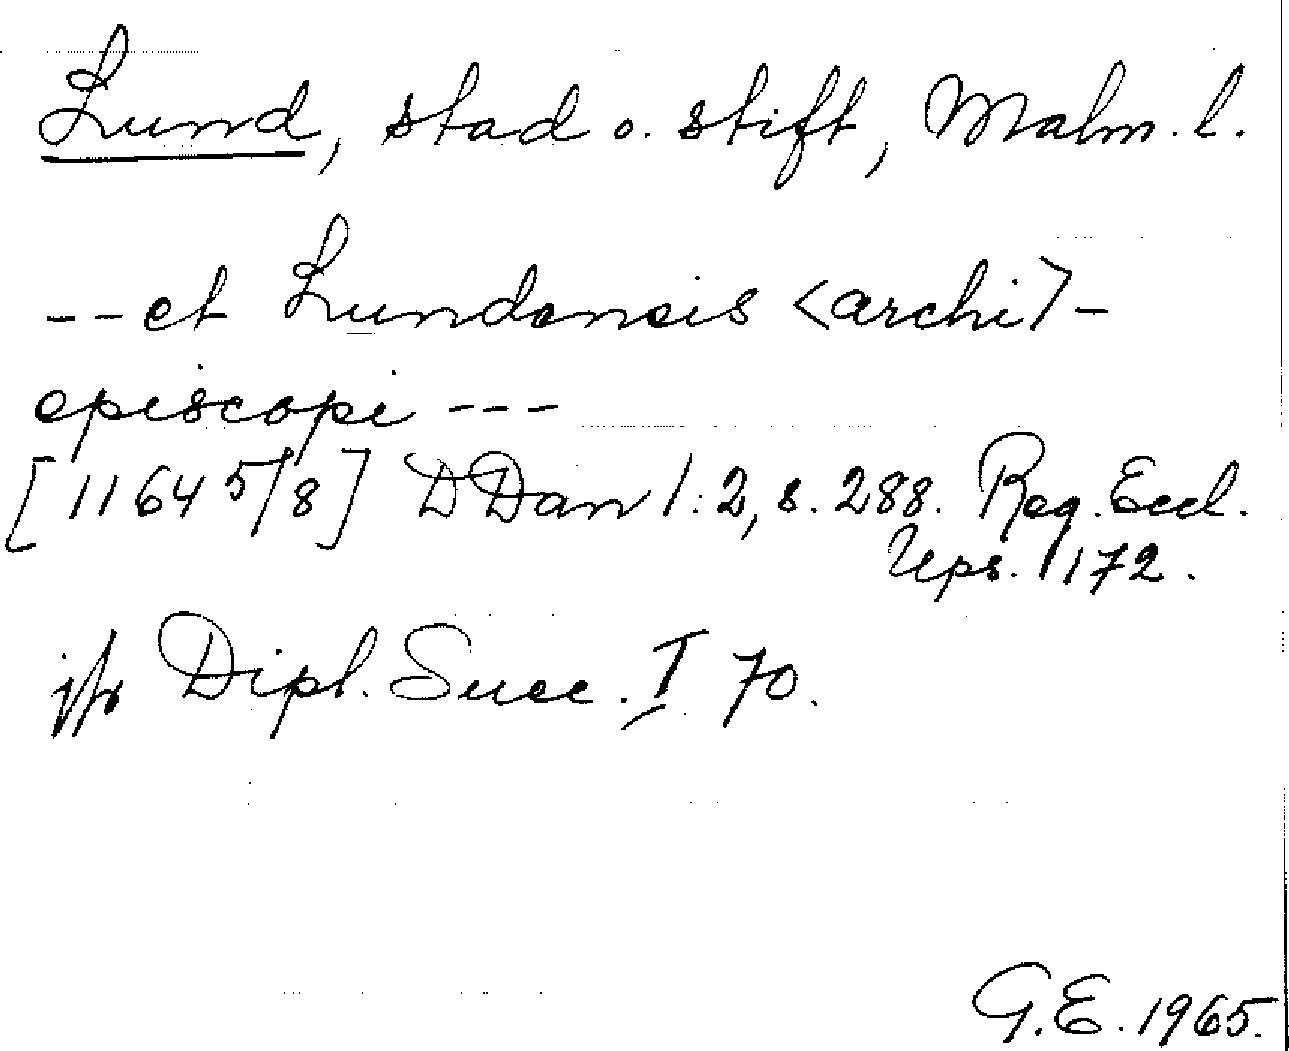 Lund, stad o. stift, Malm. l.
-- et Lundensis <archi>-
episcopi ---
[1164 5/8] DDan 1:2, s. 288. Reg. Eccl.
Ups. 172.
jfr Dipl. Suec. I 70.
G.E. 1965.